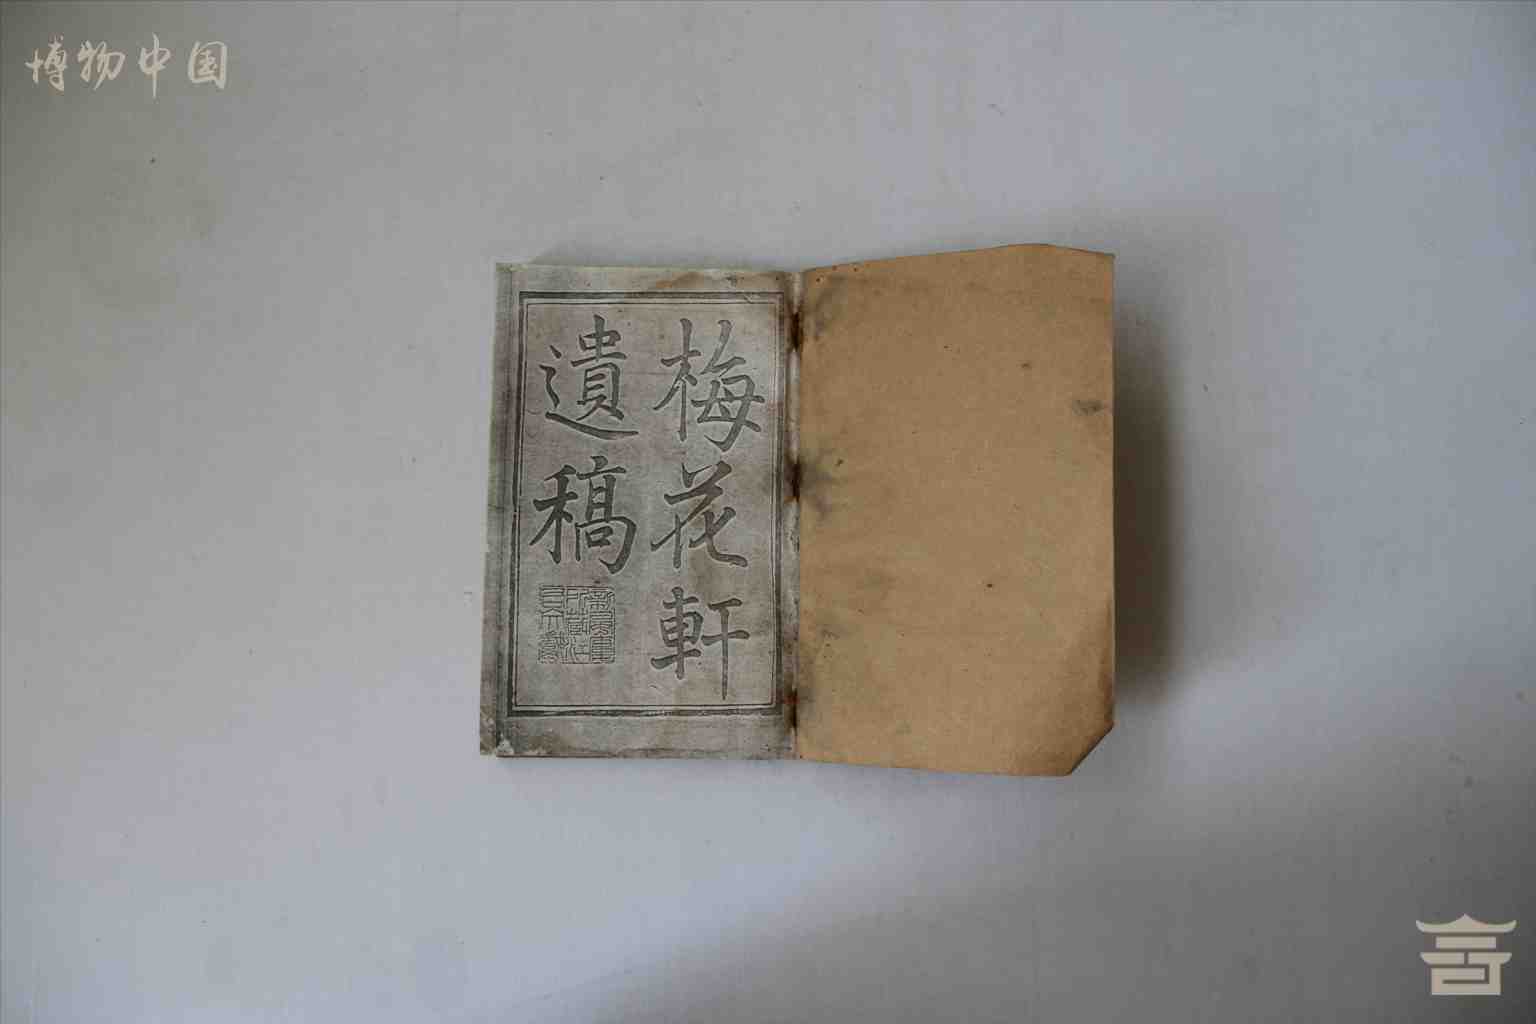 博物中国
梅花軒
遺稿